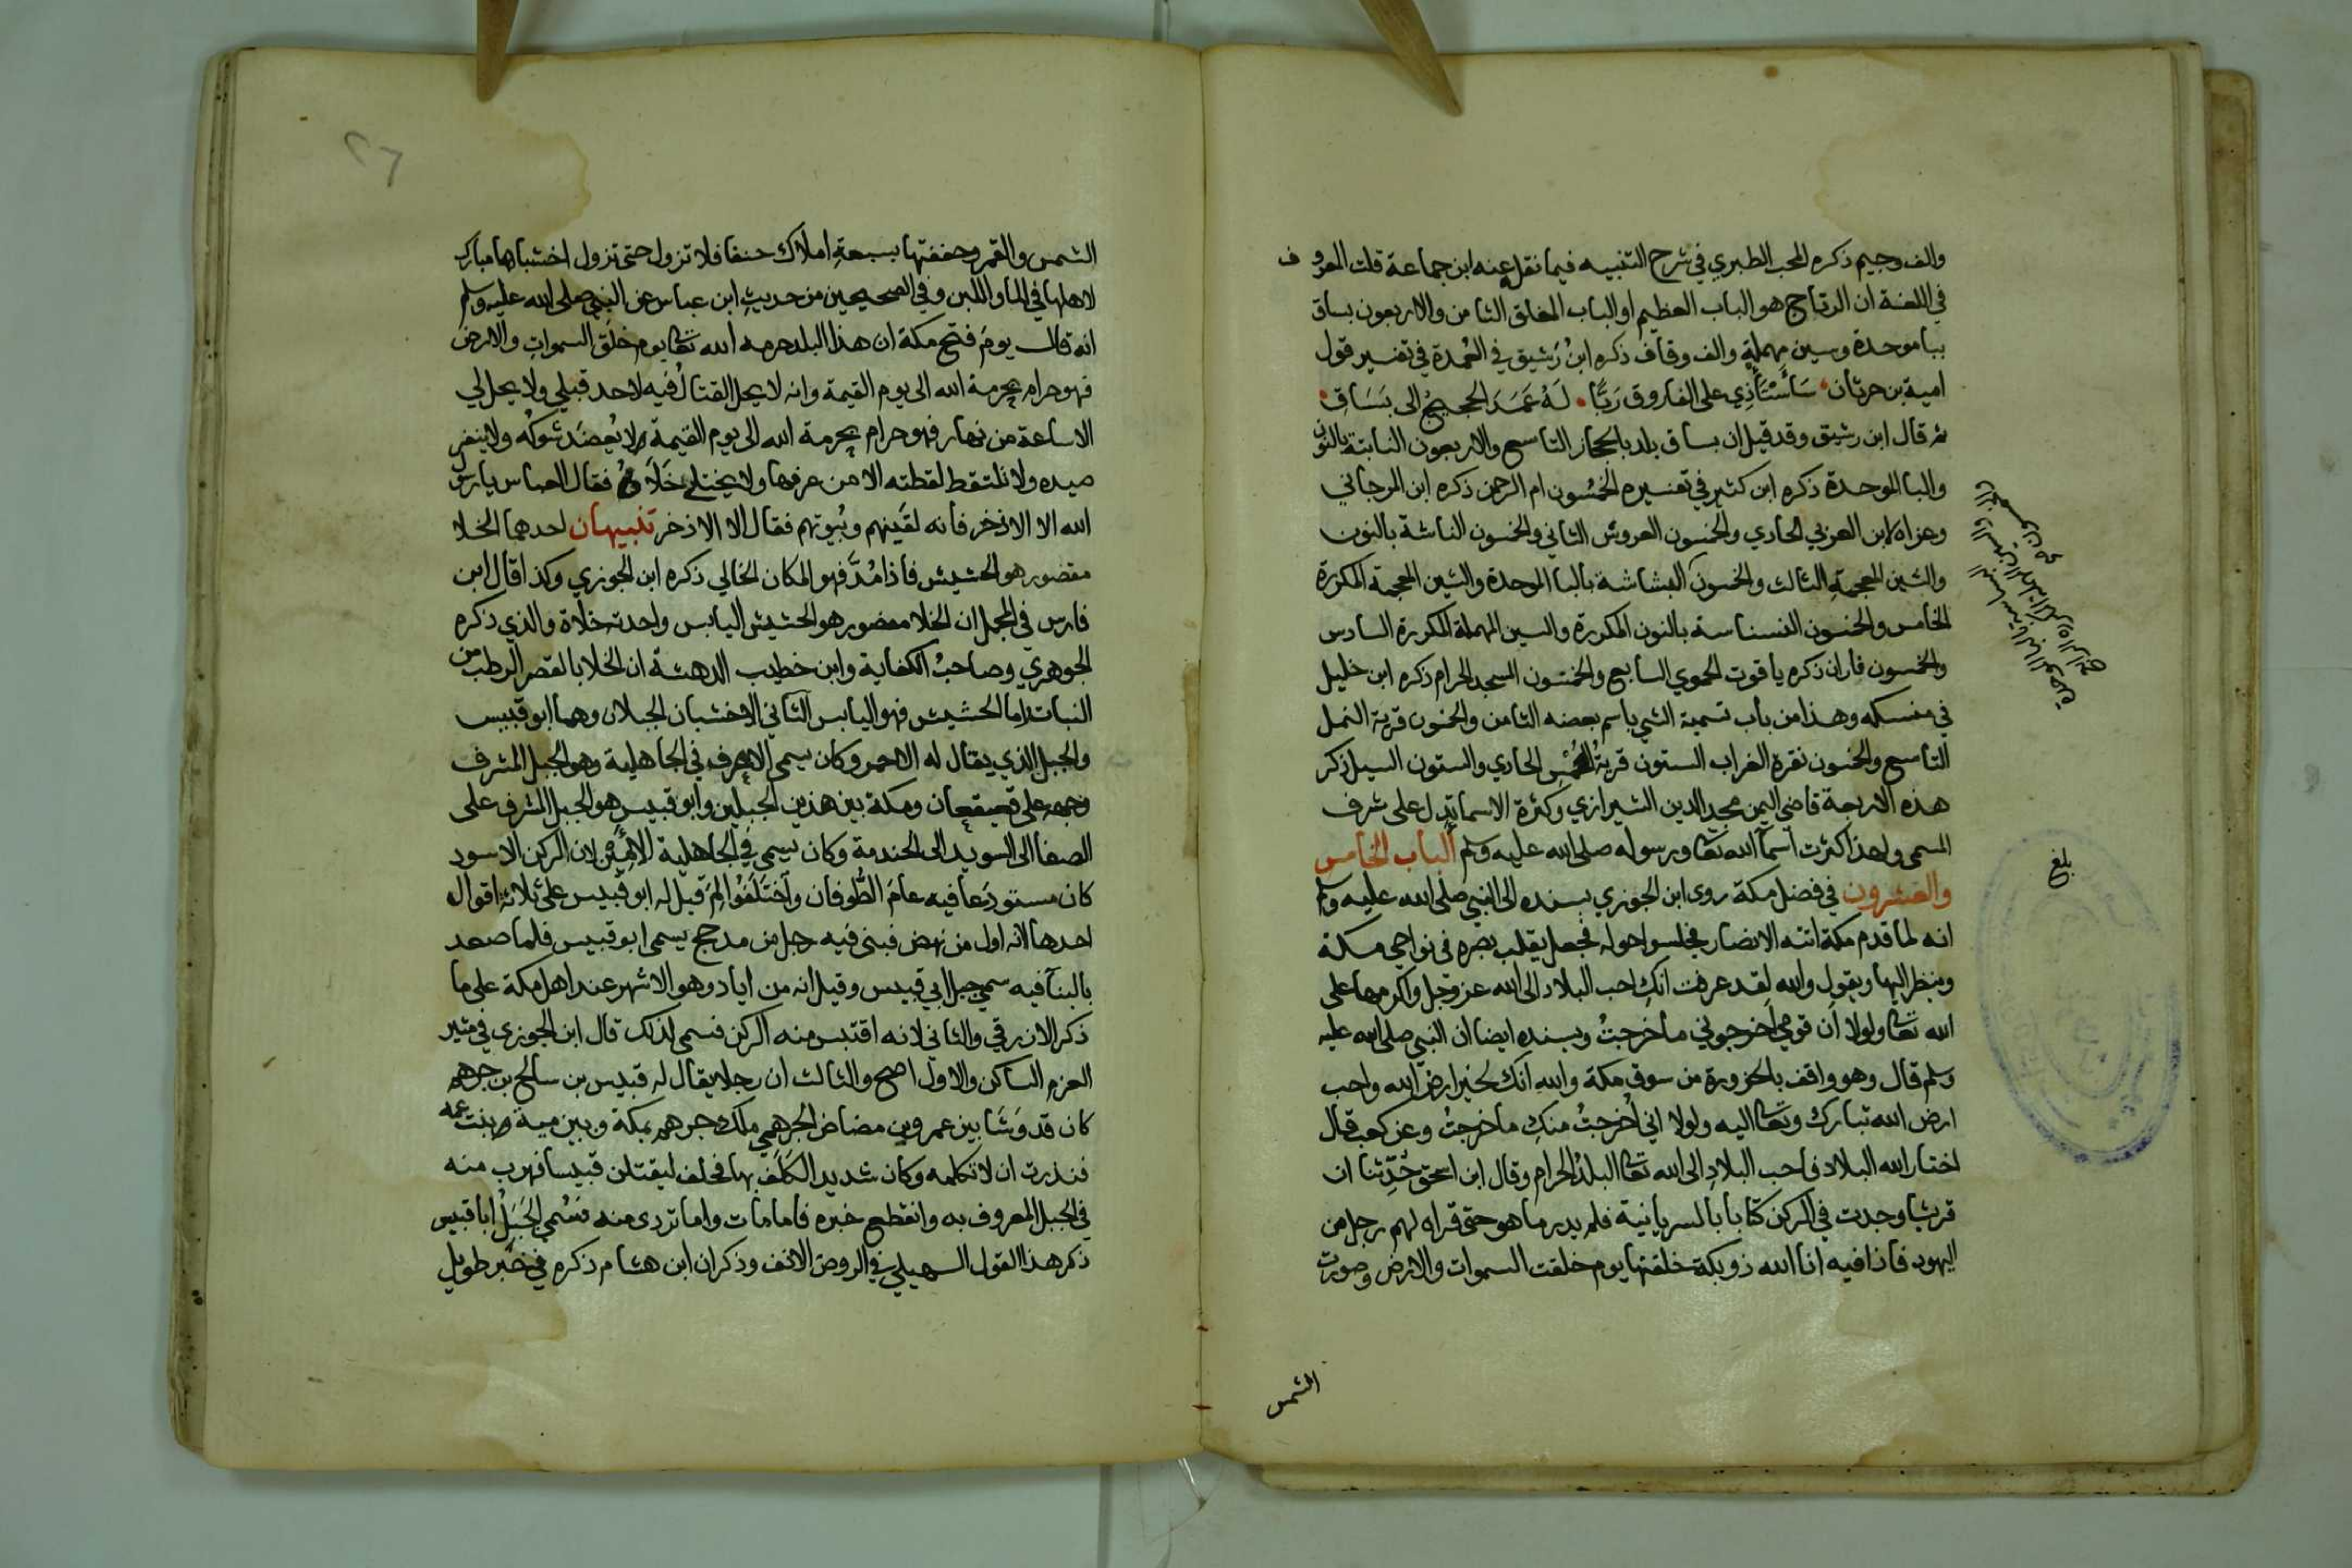 والف وجيم ذكره المحب الطبري في شرح التنبيه فيما نقل عنه ابن جماعة قلت المعروف
في اللغة ان الرتاج هو الباب العظيم او الباب المغلق الثامن والاربعون بساق
ببا موحدة وسين مهملة والف وقاف ذكره ابن رَشيق في العُمدة في تفسير قول
امية بن حرثان سَأَسْتَأذِي على الفاروق رَبًّا لَهُ عَمَدَ الحجيجُ الى بَسَاقِ
ثم قال ابن رشيق وقد قيل ان بساق بلد بالحجاز التاسع والاربعون النابتة بالنون
والبا الموحدة ذكره ابن كثير في تفسيره الخمسُون ام الرحمن ذكره ابن المرجاني
وعزاه لابن العربي الحادي والخمسون العروش الثاني والخمسون الناشة بالنون
والشين المعجمة الثالث والخمسون البشاشة بالبا الموحدة والشين المعجمة المكررة
الخامس والخمسون النسناسة بالنون المكررة والسين المهملة المكررة السادس
والخمسون فاران ذكره ياقوت الحموي السابع والخمسون المسجد الحرام ذكره ابن خليل
في منسكه وهذا من باب تسمية الشي باسم بعضه الثامن والخمسون قرية النمل
التاسع والخمسون نقرة الغراب الستون قرية الحُمْسِ الحادي والستون السيل ذكر
هذه الاربعة قاضي اليمن مجد الدين الشيرازي وكثرة الاسما تدل على شرف
المسمى ولهذا كثرت اسمآ الله تعا ورسوله صلى الله عليه وسلم الباب الخامس
والعشرون في فضل مكة روى ابن الجوزي بسنده الى النبي صلى الله عليه وسلم
انه لما قدم مكة اتته الانصار فجلسوا حوله فجعل يقلب بصره في نواحي مكة
وينظر اليها ويقول والله لقد عرفت انكِ احب البلاد الى الله عز وجل واكرمها على
الله تعا ولولا ان قومي اخرجوني ما خرجتُ وبسنده ايضا ان النبي صلى الله عليه
وسلم قال وهو واقف بالحزورة من سوق مكة والله انك لخير ارض الله واحب
ارض الله تبارك وتعا اليه ولولا اني أُخرجتُ منكِ ما خرجتُ وعن كعب قال
اختار الله البلاد فاحب البلادِ الى الله تعا البلدُ الحرام وقال ابن اسحق حُدِّثنا ان
قريشا وجدت في الركن كتابا بالسريانية فلم يدر ما هو حتى قراه لهم رجل من
اليهود فاذا فيه انا الله ذو بكة خلقتها يوم خلقت السموات والارض وصورت
بلغ
الشمس
٢٦
الشمس والقمر وحففتها بسبعةِ املاك حنفا فلا تزول حتى تزول اخشباها مبارك
لاهلها في الما واللبن وفي الصحيحين من حديث ابن عباس عن النبي صلى الله عليه وسلم
انه قال يومَ فتح مكة ان هذا البلد حرمه الله تعا يوم خلق السموات والارض
فهو حرام بحرمة الله الى يوم القيمة وانه لا يحل القتالُ فيه لاحد قبلي ولا يحل لي
الا ساعة من نهار فهو حرام بحرمة الله الى يوم القيمة لا يُعضَد شوكُه ولا ينفر
صيده ولا تلتقط لقطته الا من عرفها ولا يختلى خَلَاهُ فقال العباس يا رسول
الله الا الاذخر فانه لقَينهم وبُيوتهم فقال الا الاذخر تنبيهان احدهما الخلا
مقصور هو الحشيش فاذا مُدَّ فهو المكان الخالي ذكره ابن الجوزي وكذا قال ابن
فارس في المجمل ان الخلا مقصور هو الحشيش اليابس واحدته خلاة والذي ذكره
الجوهري وصاحبُ الكفاية وابن خطيب الدهشة ان الخلا بالقصر الرطب من
النبات اما الحشيش فهو اليابس الثاني الاخشبان الجبلان وهما ابو قبيس
والجبل الذي يقال له الاحمر وكان يسمى الاعرف في الجاهلية وهو الجبل المشرف
وجهه على قعيقعان ومكة بين هذين الجبلين وابو قبيس هو الجبل المشرف على
الصفا الى السويد الى الخندمة وكان يسمى في الجاهلية الامين لان الركن الاسود
كان مستودَعا فيه عامَ الطُّوفان واختَلَفُوا لِمَ قيل له ابو قبيس على ثلاثة اقوال
احدها لانه اول من نهض فبنى فيه رجل من مدحج يسمى ابو قبيس فلما صعد
بالبنآ فيه سمي جبل ابي قبيس وقيل انه من اياد وهو الاشهر عند اهل مكة على ما
ذكر الازرقي والثاني لانه اقتبس منه الركن فسمى لذلك قال ابن الجوزي في مثير
العزم الساكن والاول اصح والثالث ان رجلا يقال له قبيس بن سالح بن جرهم
كان قد وَشَا بين عمرو بن مضاض الجرهمي ملك جرهم بمكة وبين مية بنت عمه
فنذرت ان لا تكلمه وكان شديد الكَلَفِ بها فحلف ليقتلن قبيسا فهرب منه
في الجبل المعروف به وانقطع خبره فاما مات واما تردى منه فسُمي الجَبَلُ ابا قبيس
ذكر هذا القول السهيلي في الروض الانف وذكر ان ابن هشام ذكره في خبر طويل